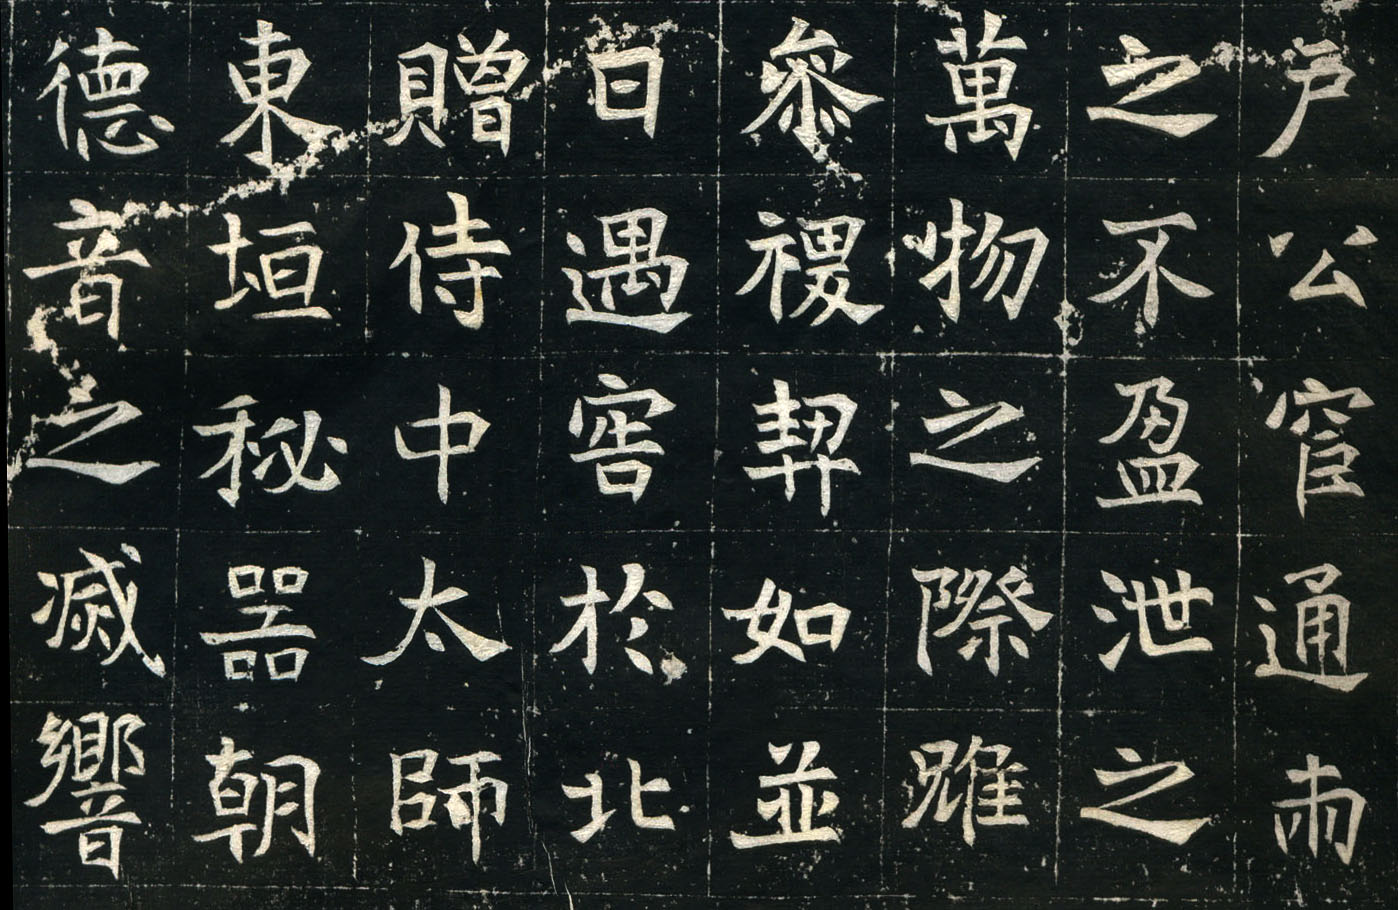 戶公窅通
之不盈泄之
萬物之際雖
叅禝契如並
日遇害於北
贈侍中太師
東垣秘器朝
德音之滅響